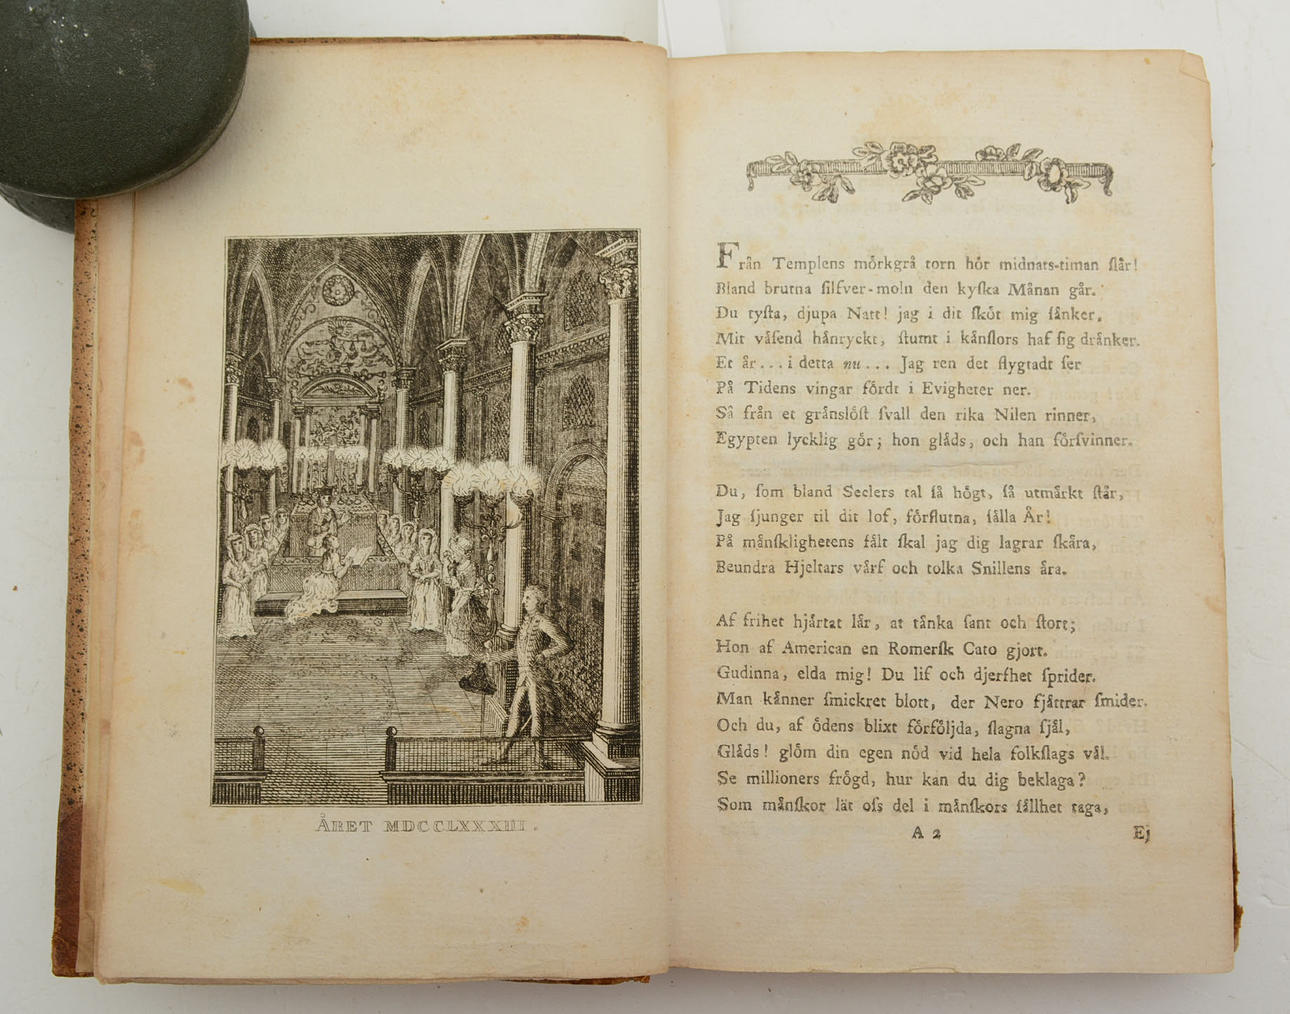 ÅRET MDCCLXXXIII.
Från Templens mörkgrå torn hör midnats-timan ſlår!
Bland brutna ſilfver-moln den kyſka Månan går.
Du tyſta, djupa Natt! jag i dit ſköt mig ſänker.
Mit väſend hänryckt, ſtumt i känſlors haf ſig dränker.
Et år... i detta nu... Jag ren det flygtadt ſer
På Tidens vingar fördt i Evigheter ner.
Så från et gränslöſt ſvall den rika Nilen rinner,
Egypten lycklig gör; hon gläds, och han förſvinner.
Du, ſom bland Seclers tal ſå högt, ſå utmärkt ſtår,
Jag ſjunger til dit lof, förflutna, ſälla År!
På mänſklighetens fält ſkal jag dig lagrar ſkära,
Beundra Hjeltars värf och tolka Snillens ära.
Af frihet hjärtat lär, at tänka ſant och ſtort;
Hon af American en Romerſk Cato gjort.
Gudinna, elda mig! Du lif och djerfhet ſprider.
Man känner ſmickret blott, der Nero fjättrar ſmider.
Och du, af ödens blixt förföljda, ſlagna ſjäl,
Gläds! glöm din egen nöd vid hela folkſlags väl.
Se millioners frögd, hur kan du dig beklaga?
Som mänſkor lät oſs del i mänſkors ſällhet taga,
A 2
Ej